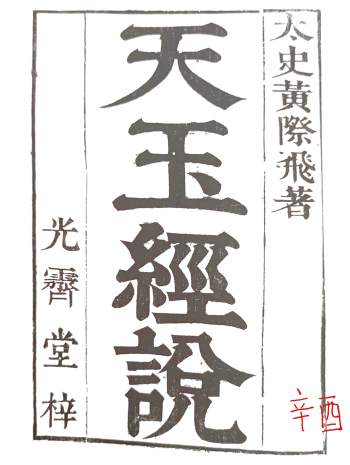 太史黃際飛著
天玉經說
光霽堂梓
辛酉